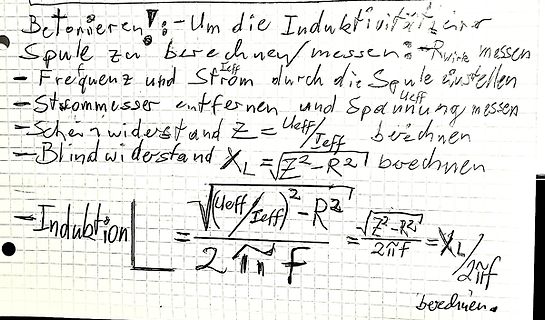 Betonieren!: - Um die Induktivität einer
Spule zu berechnen/messen: - R_Wirk messen
- Frequenz und Strom Ieff durch die Spule einstellen
- Strommesser entfernen und Spannung Ueff messen
- Scheinwiderstand Z = Ueff/Ieff berechnen
- Blindwiderstand X_L = √(Z² - R²) berechnen
- Induktion L = √((Ueff/Ieff)² - R²) / 2πf = √(Z² - R²) / 2πf = X_L/2πf
berechnen.